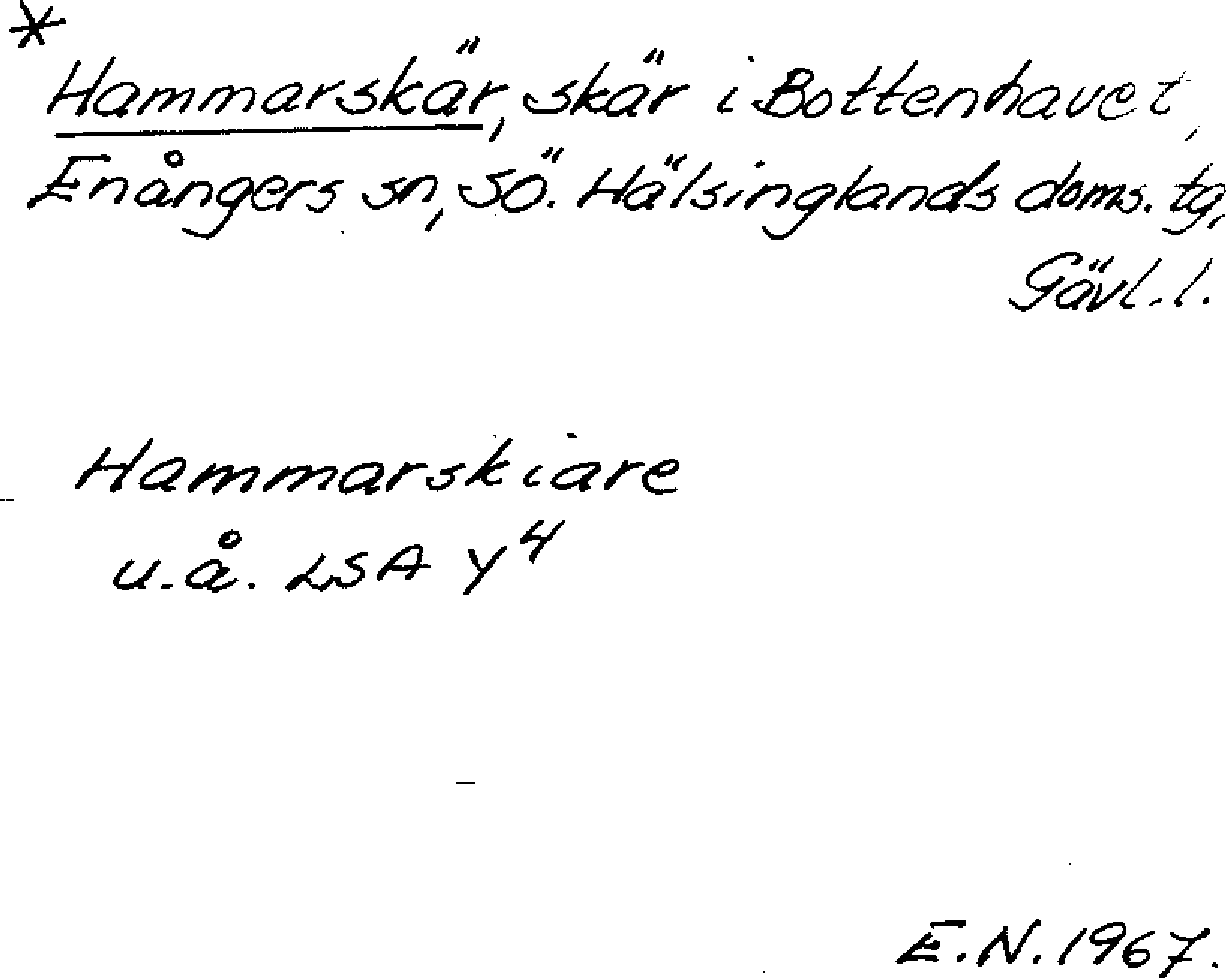 *
Hammarskär, skär i Bottenhavet,
Enångers sn, SÖ. Hälsinglands doms. tg,
Gävl. l.
Hammarskiare
u.å. LSA Y4
E.N. 1967.